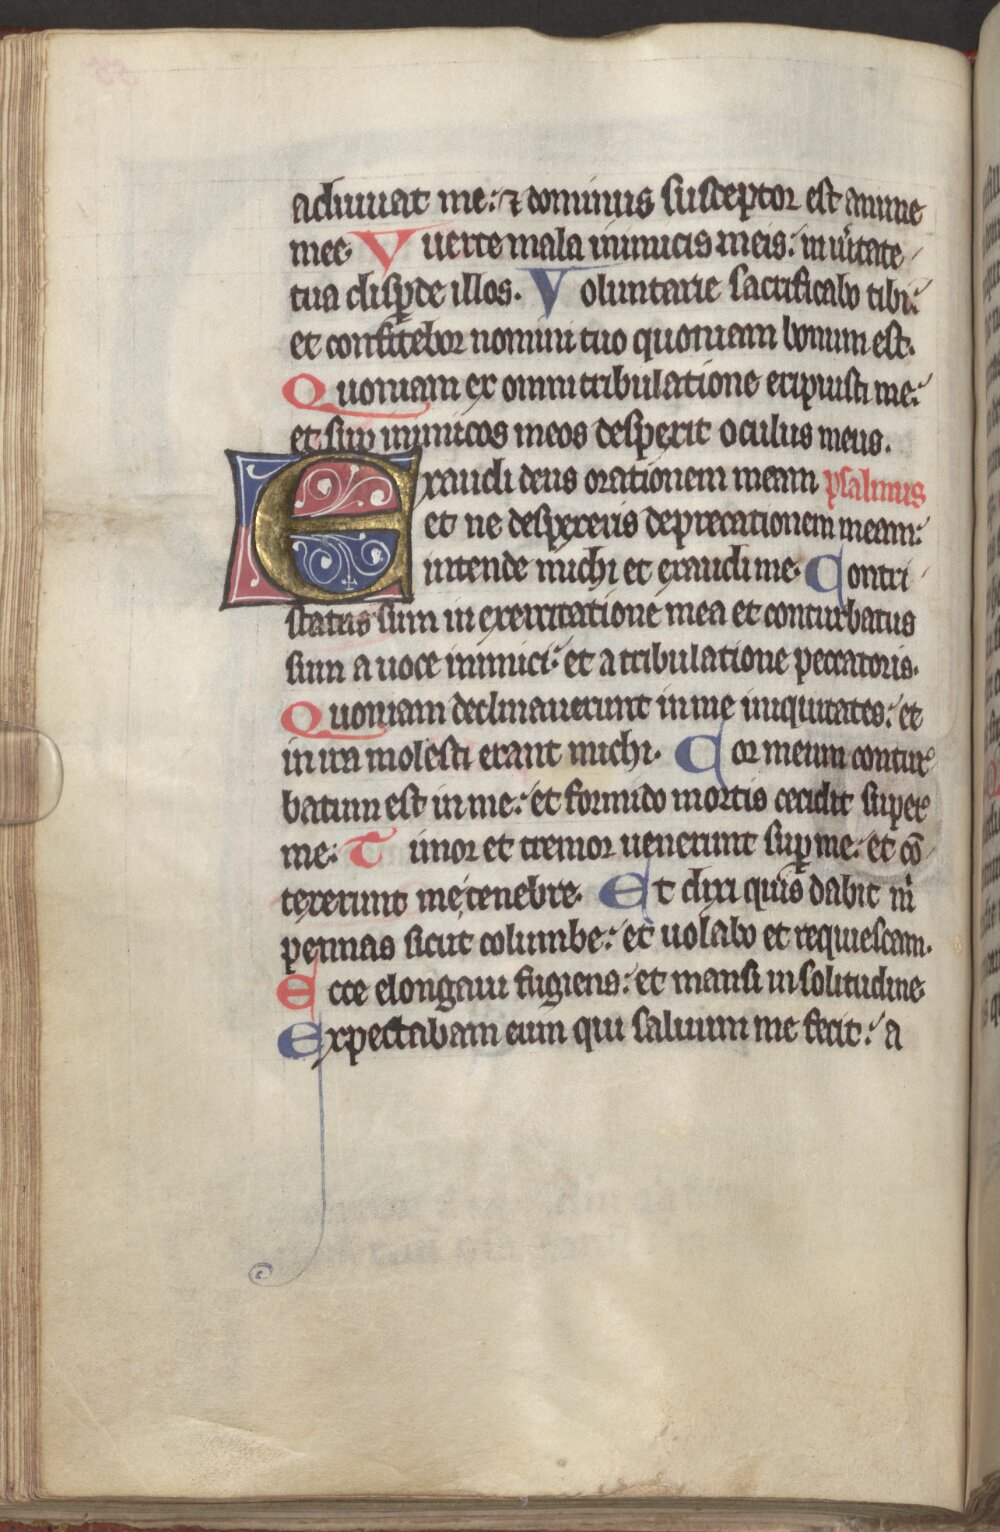 adiuuat me: ⁊ dominus susceptor est anime
mee. V uerte mala inimicis meis: in uͥtate
tua disꝑde illos. V oluntarie sacrificabo tibi:
et confitebor nomini tuo quoniam bonum est.
Q uoniam ex omni tribulatione eripuisti me:
et sup inimicos meos despexit oculus meus.
E xaudi deus orationem meam psalmus
et ne despexeris deprecationem meam:
intende michi et exaudi me. C ontri
status sum in exercitatione mea et conturbatus
sum a uoce inimici: et a tribulatione peccatoris.
Q uoniam declinauerunt in me iniquitates: et
in ira molesti erant michi. C or meum contur
batum est in me: et formido mortis cecidit super
me: T imor et tremor uenerunt suꝑ me: et cō
texerunt me tenebre. E t dixi quis dabit m̍
pennas sicut columbe: et uolabo et requiescam.
E cce elongaui fugiens: et mansi in solitudine
E xpectabam eum qui saluum me fecit: a